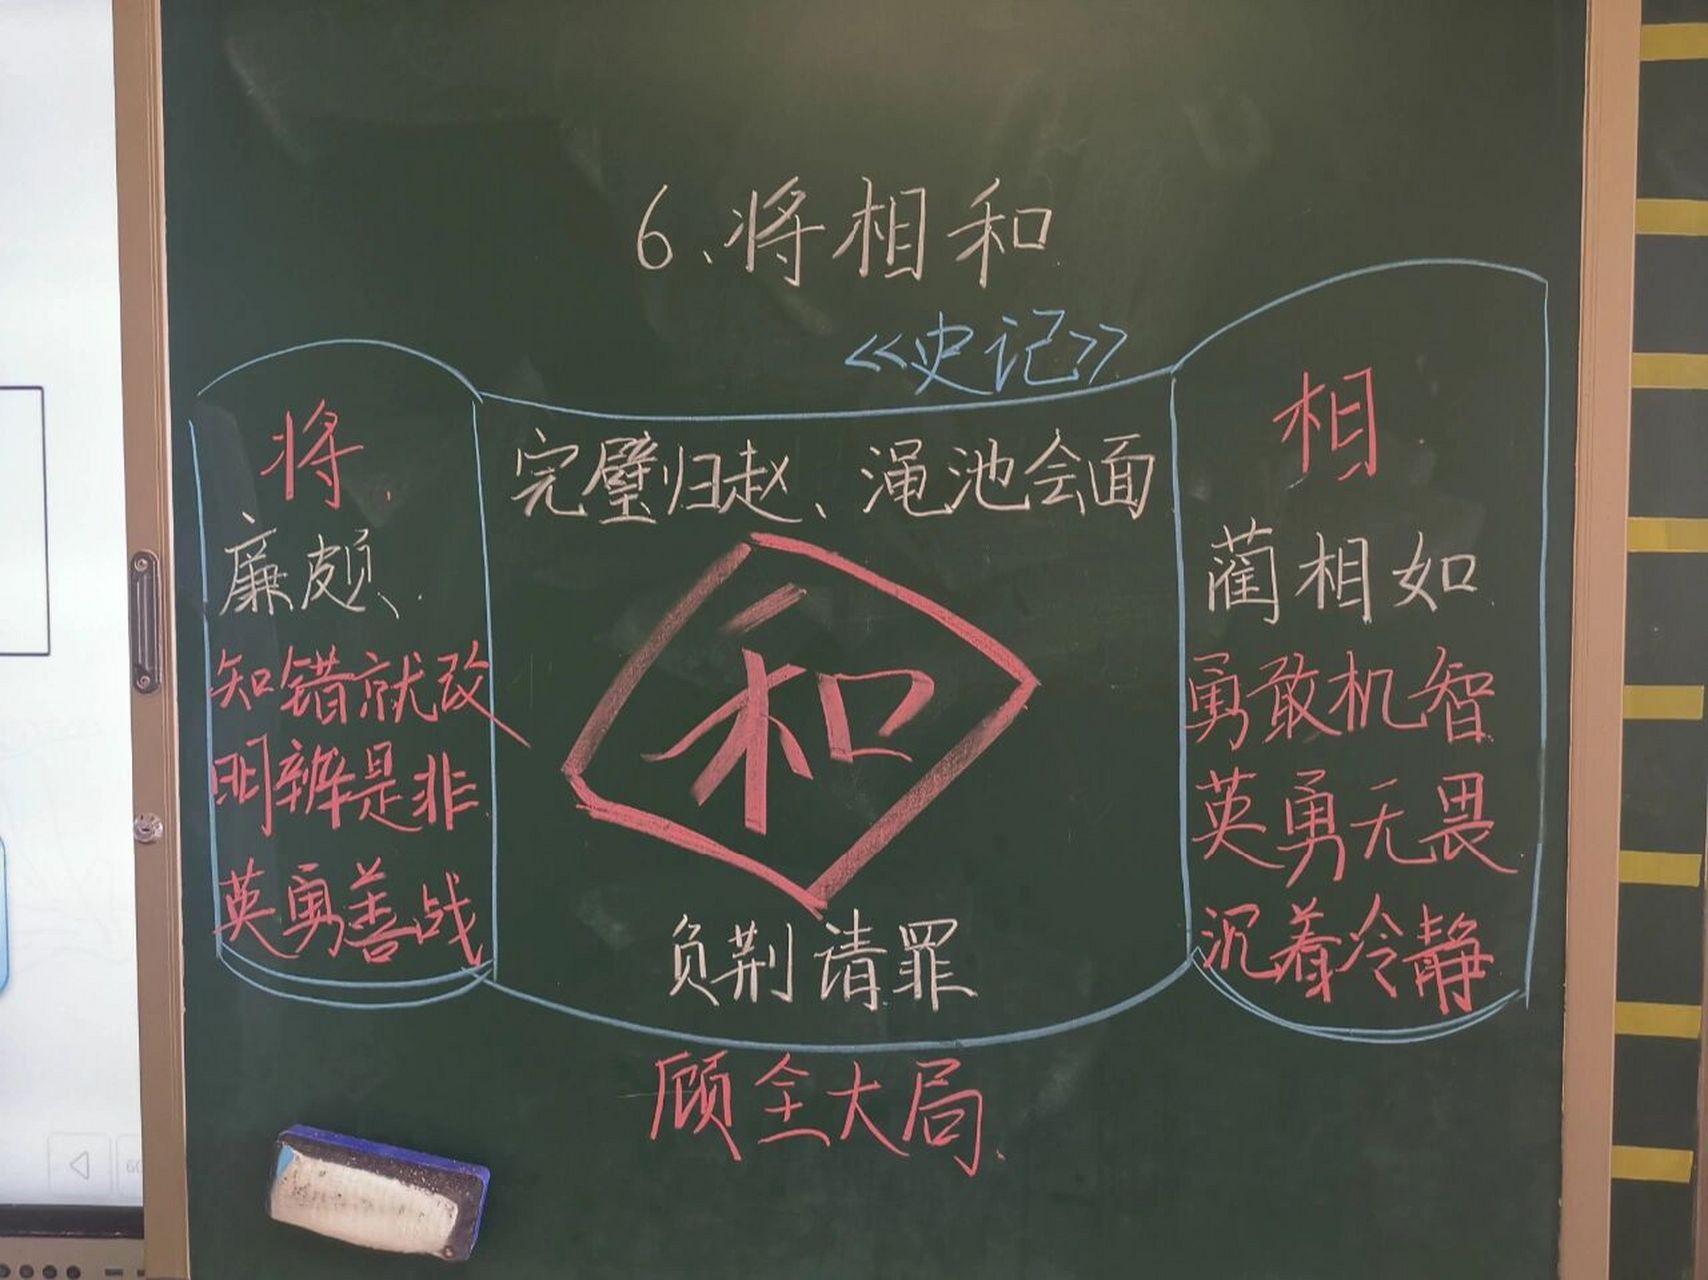 6、将相和
《史记》
将
廉颇
知错就改
明辨是非
英勇善战
完璧归赵、渑池会面
和
负荆请罪
相
蔺相如
勇敢机智
英勇无畏
沉着冷静
顾全大局